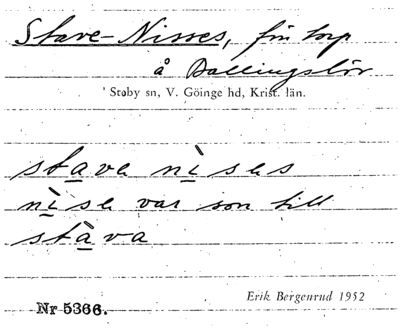 Stave-Nisses, fin torp
å Dallingslöv
Stoby sn, V. Göinge hd, Krist. län.
stava nìses
nìse var son till
stàva
Erik Bergenrud 1952
Nr 5366.